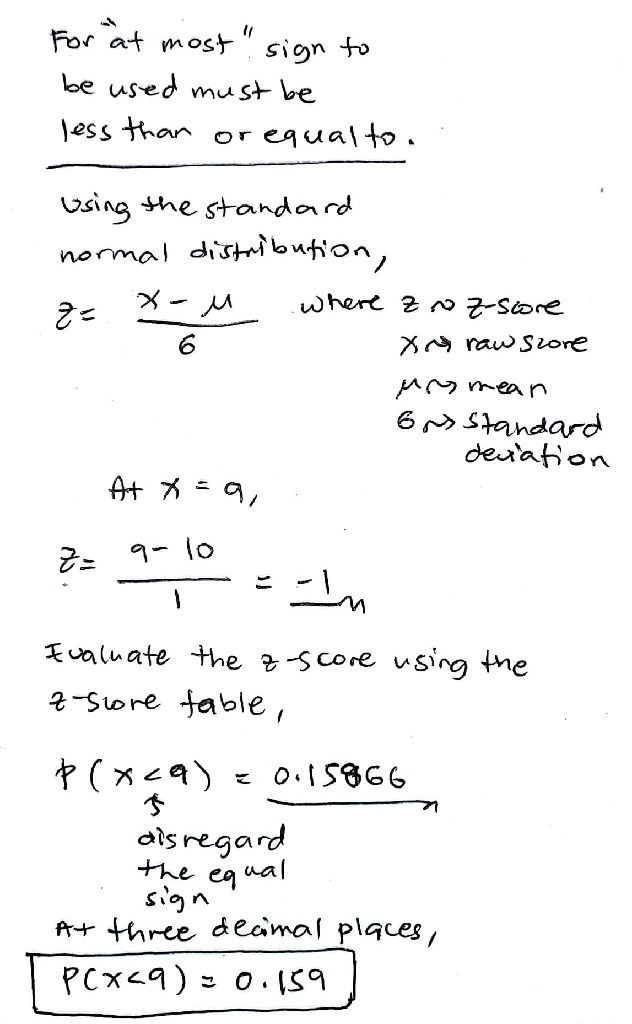 For "at most" sign to
be used must be
less than or equal to.
Using the standard
normal distribution,
z = x - μ / 6 where z ~> z-score
x ~> raw score
μ ~> mean
6 ~> standard
deviation
At x = 9,
z = 9 - 10 / 1 = -1
Evaluate the z-score using the
z-score table,
P(x<9) = 0.15866
disregard
the equal
sign
At three decimal places,
P(x<9) = 0.159